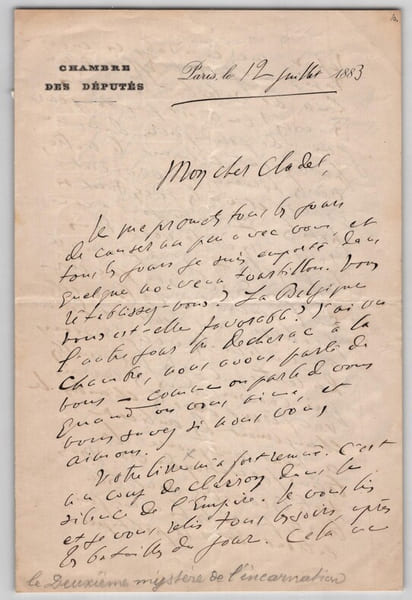 CHAMBRE
DES DÉPUTÉS
Paris, le 12 juillet 1883
Mon cher Cladel,
Je me promets tous les jours
de causer un peu avec vous et
tous les jours je suis emporté dans
quelque nouveau tourbillon. Vous
rétablissez-vous? La Belgique
vous est-elle favorable? J'ai vu
l'autre jour à la
Chambre, nous avons parlé de
vous — comme on parle de vous
quand on vous aime, et
vous savez si nous vous
aimons.
Votre livre m'a fort remué. C'est
un coup de clairon dans le
silence de l'Empire. Je vous lis
et je vous relis tous les soirs, après
les batailles du jour. Cela me
le Deuxième mystère de l'incarnation